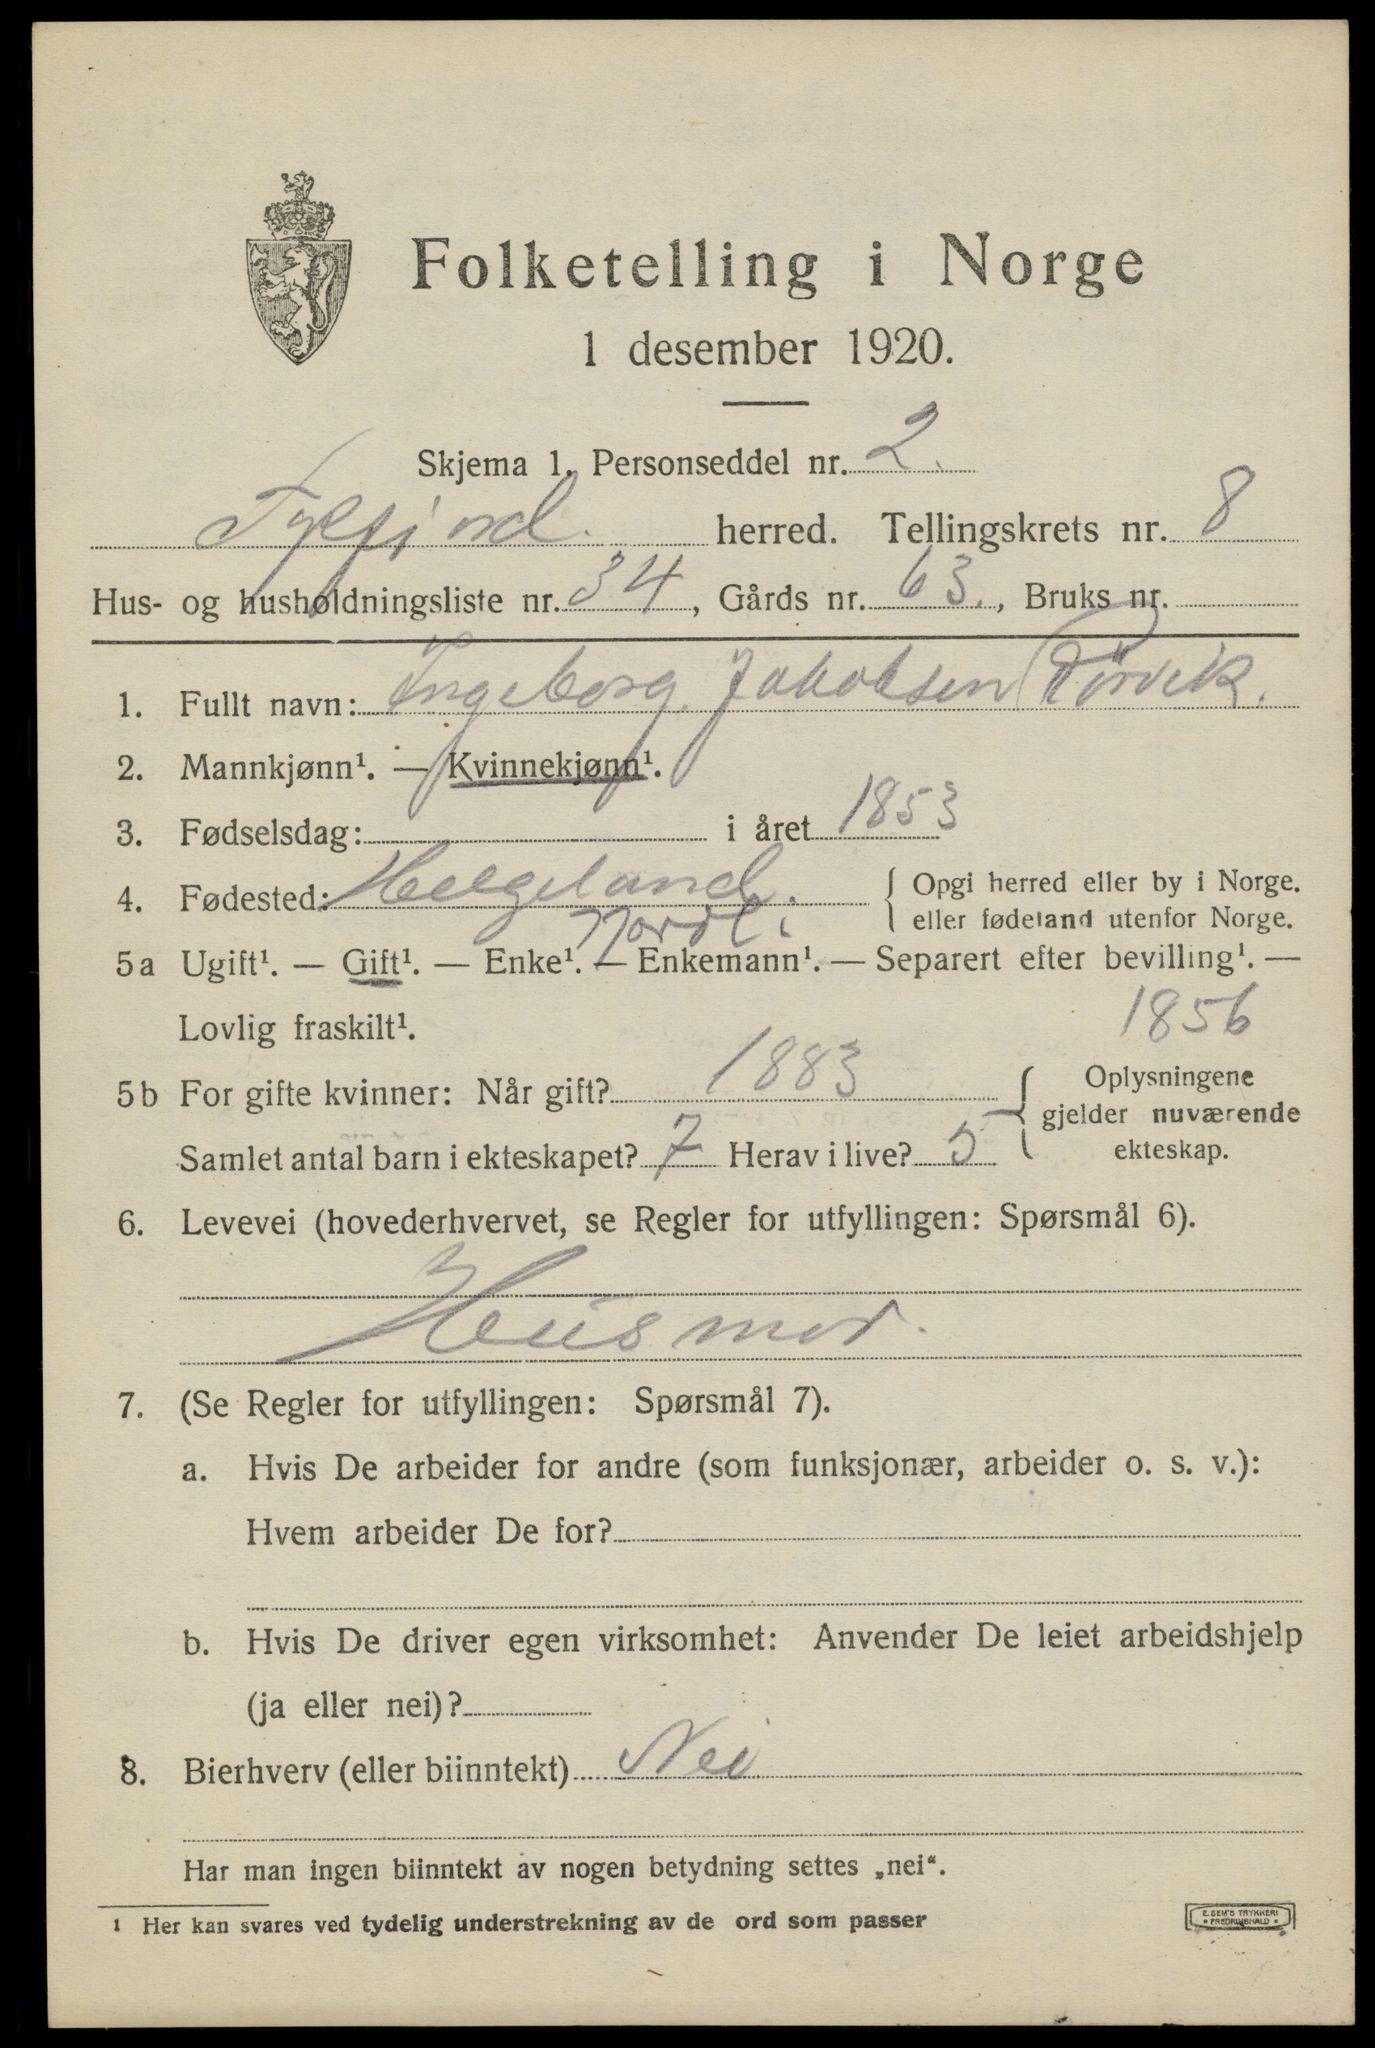 Folketelling i Norge
1 desember 1920.
Skjema 1. Personseddel nr. 2.
herred. Tellingskrets nr. 8
Hus- og husholdningsliste nr. 34, Gårds nr. 63., Bruks nr.
1. Fullt navn: Ingeborg Jakobsen
2. Mannkjønn¹. — Kvinnekjønn¹.
3. Fødselsdag: i året 1853
4. Fødested: Helgeland. { Opgi herred eller by i Norge.
Nordl. eller fødeland utenfor Norge.
5a Ugift¹. — Gift¹. — Enke¹. — Enkemann¹. — Separert efter bevilling¹. —
Lovlig fraskilt¹. 1856
5b For gifte kvinner: Når gift? 1883 { Oplysningene
gjelder nuværende
Samlet antal barn i ekteskapet? 7 Herav i live? 5 ekteskap.
6. Levevei (hovederhvervet, se Regler for utfyllingen: Spørsmål 6).
Husmor.
7. (Se Regler for utfyllingen: Spørsmål 7).
a. Hvis De arbeider for andre (som funksjonær, arbeider o. s. v.):
Hvem arbeider De for?
b. Hvis De driver egen virksomhet: Anvender De leiet arbeidshjelp
(ja eller nei)?
8. Bierhverv (eller biinntekt) Nei
Har man ingen biinntekt av nogen betydning settes „nei“.
1 Her kan svares ved tydelig understrekning av de ord som passer
E. SEM'S TRYKKERI
FREDRIKSHALD